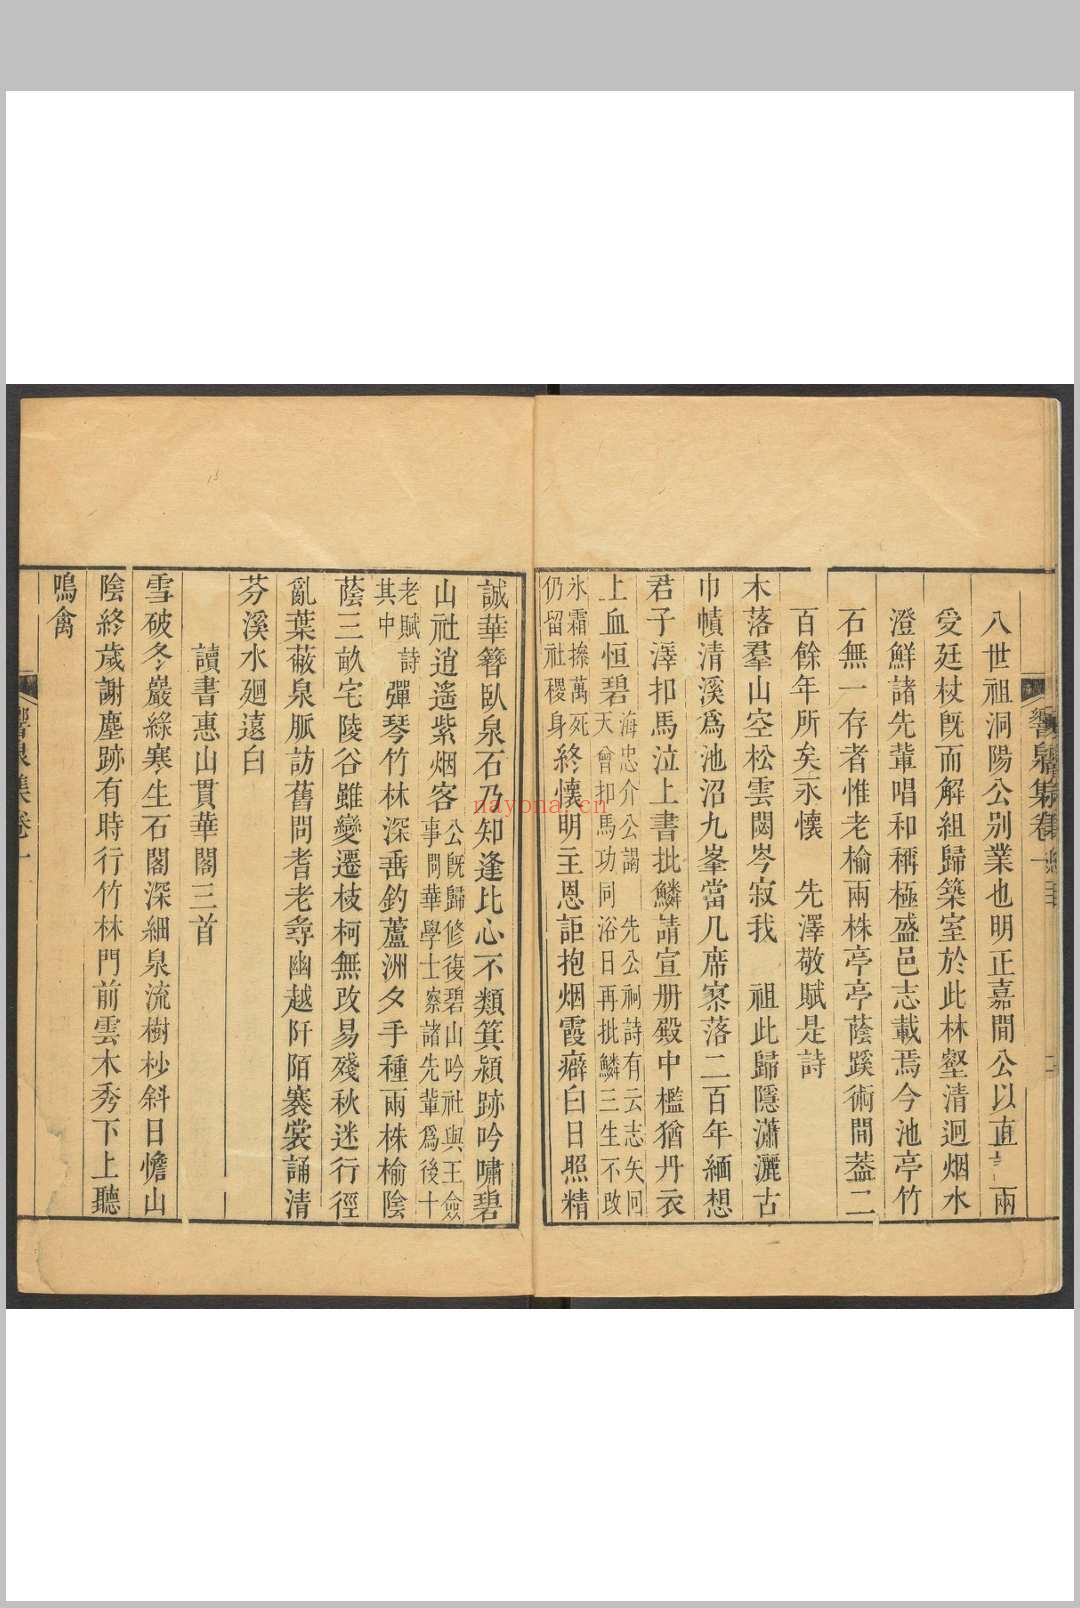 響泉集卷一
八世祖洞陽公別業也明正嘉間公以直言兩
受廷杖旣而解組歸築室於此林壑清迥烟水
澄鮮諸先輩唱和稱極盛邑志載焉今池亭竹
石無一存者惟老榆兩株亭亭蔭蹊術間葢二
百餘年所矣永懷 先澤敬賦是詩
木落羣山空松雲閟岑寂我 祖此歸隱瀟灑古
巾幘清溪爲池沼九峯當几席寥落二百年緬想
君子澤扣馬泣上書批鱗請宣册殿中檻猶丹衣
上血恒碧海忠介公謁 先公祠詩有云志矢囘
天會扣馬功同浴日再批鱗三生不改
氷霜操萬死
仍留社稷身終懷明主恩詎抱烟霞癖白日照精
誠華簪臥泉石乃知逢比心不類箕潁跡吟嘯碧
山社逍遙紫烟客公旣歸修復碧山吟社與王僉
事問華學士察諸先輩爲後十
老賦詩
其中彈琴竹林深垂釣蘆洲夕手種兩株榆陰
蔭三畝宅陵谷雖變遷枝柯無改易殘秋迷行徑
亂葉蔽泉脈訪舊問耆老尋幽越阡陌褰裳誦清
芬溪水廻遠白
讀書惠山貫華閣三首
雪破冬巖綠寒生石閣深細泉流樹杪斜日憺山
陰終歲謝塵跡有時行竹林門前雲木秀下上聽
鳴禽
響泉集卷一
nayona.cn